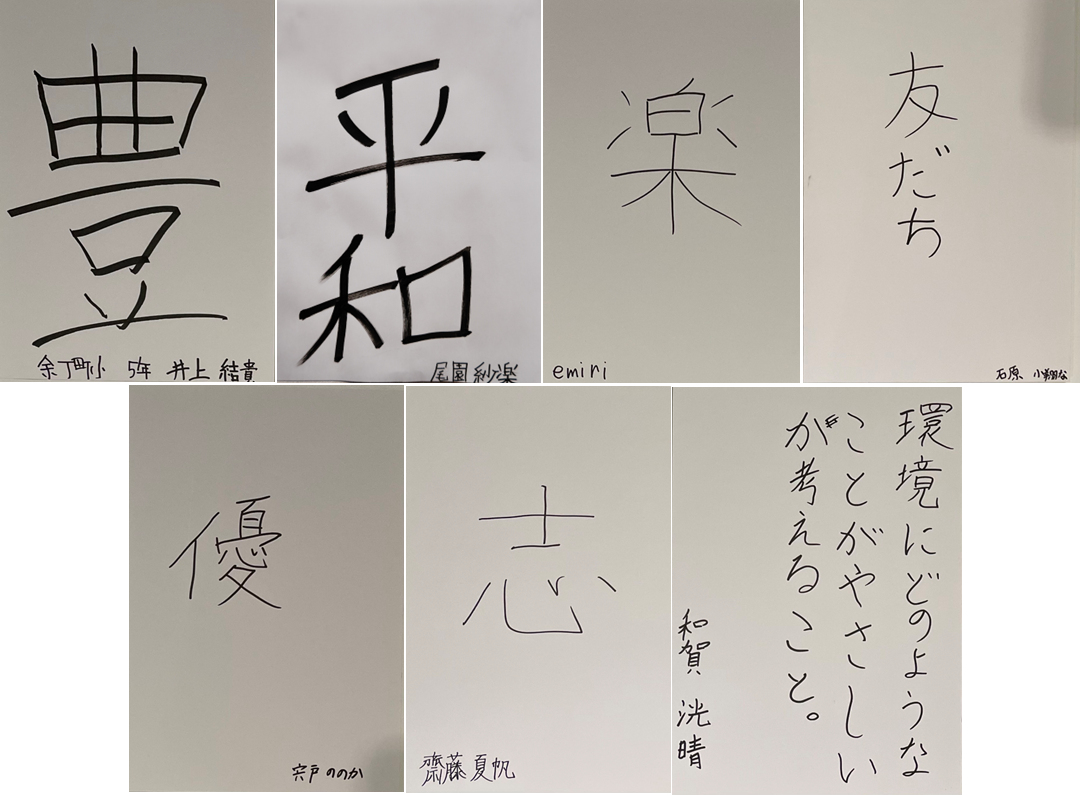 豊
余丁町小 5年 井上 結貴
平和
尾園紗楽
楽
emiri
友だち
石原 小翔な
優
宍戸ののか
志
齋藤夏帆
環境にどのような
ことがやさしい
が考えること。
和賀 洸晴